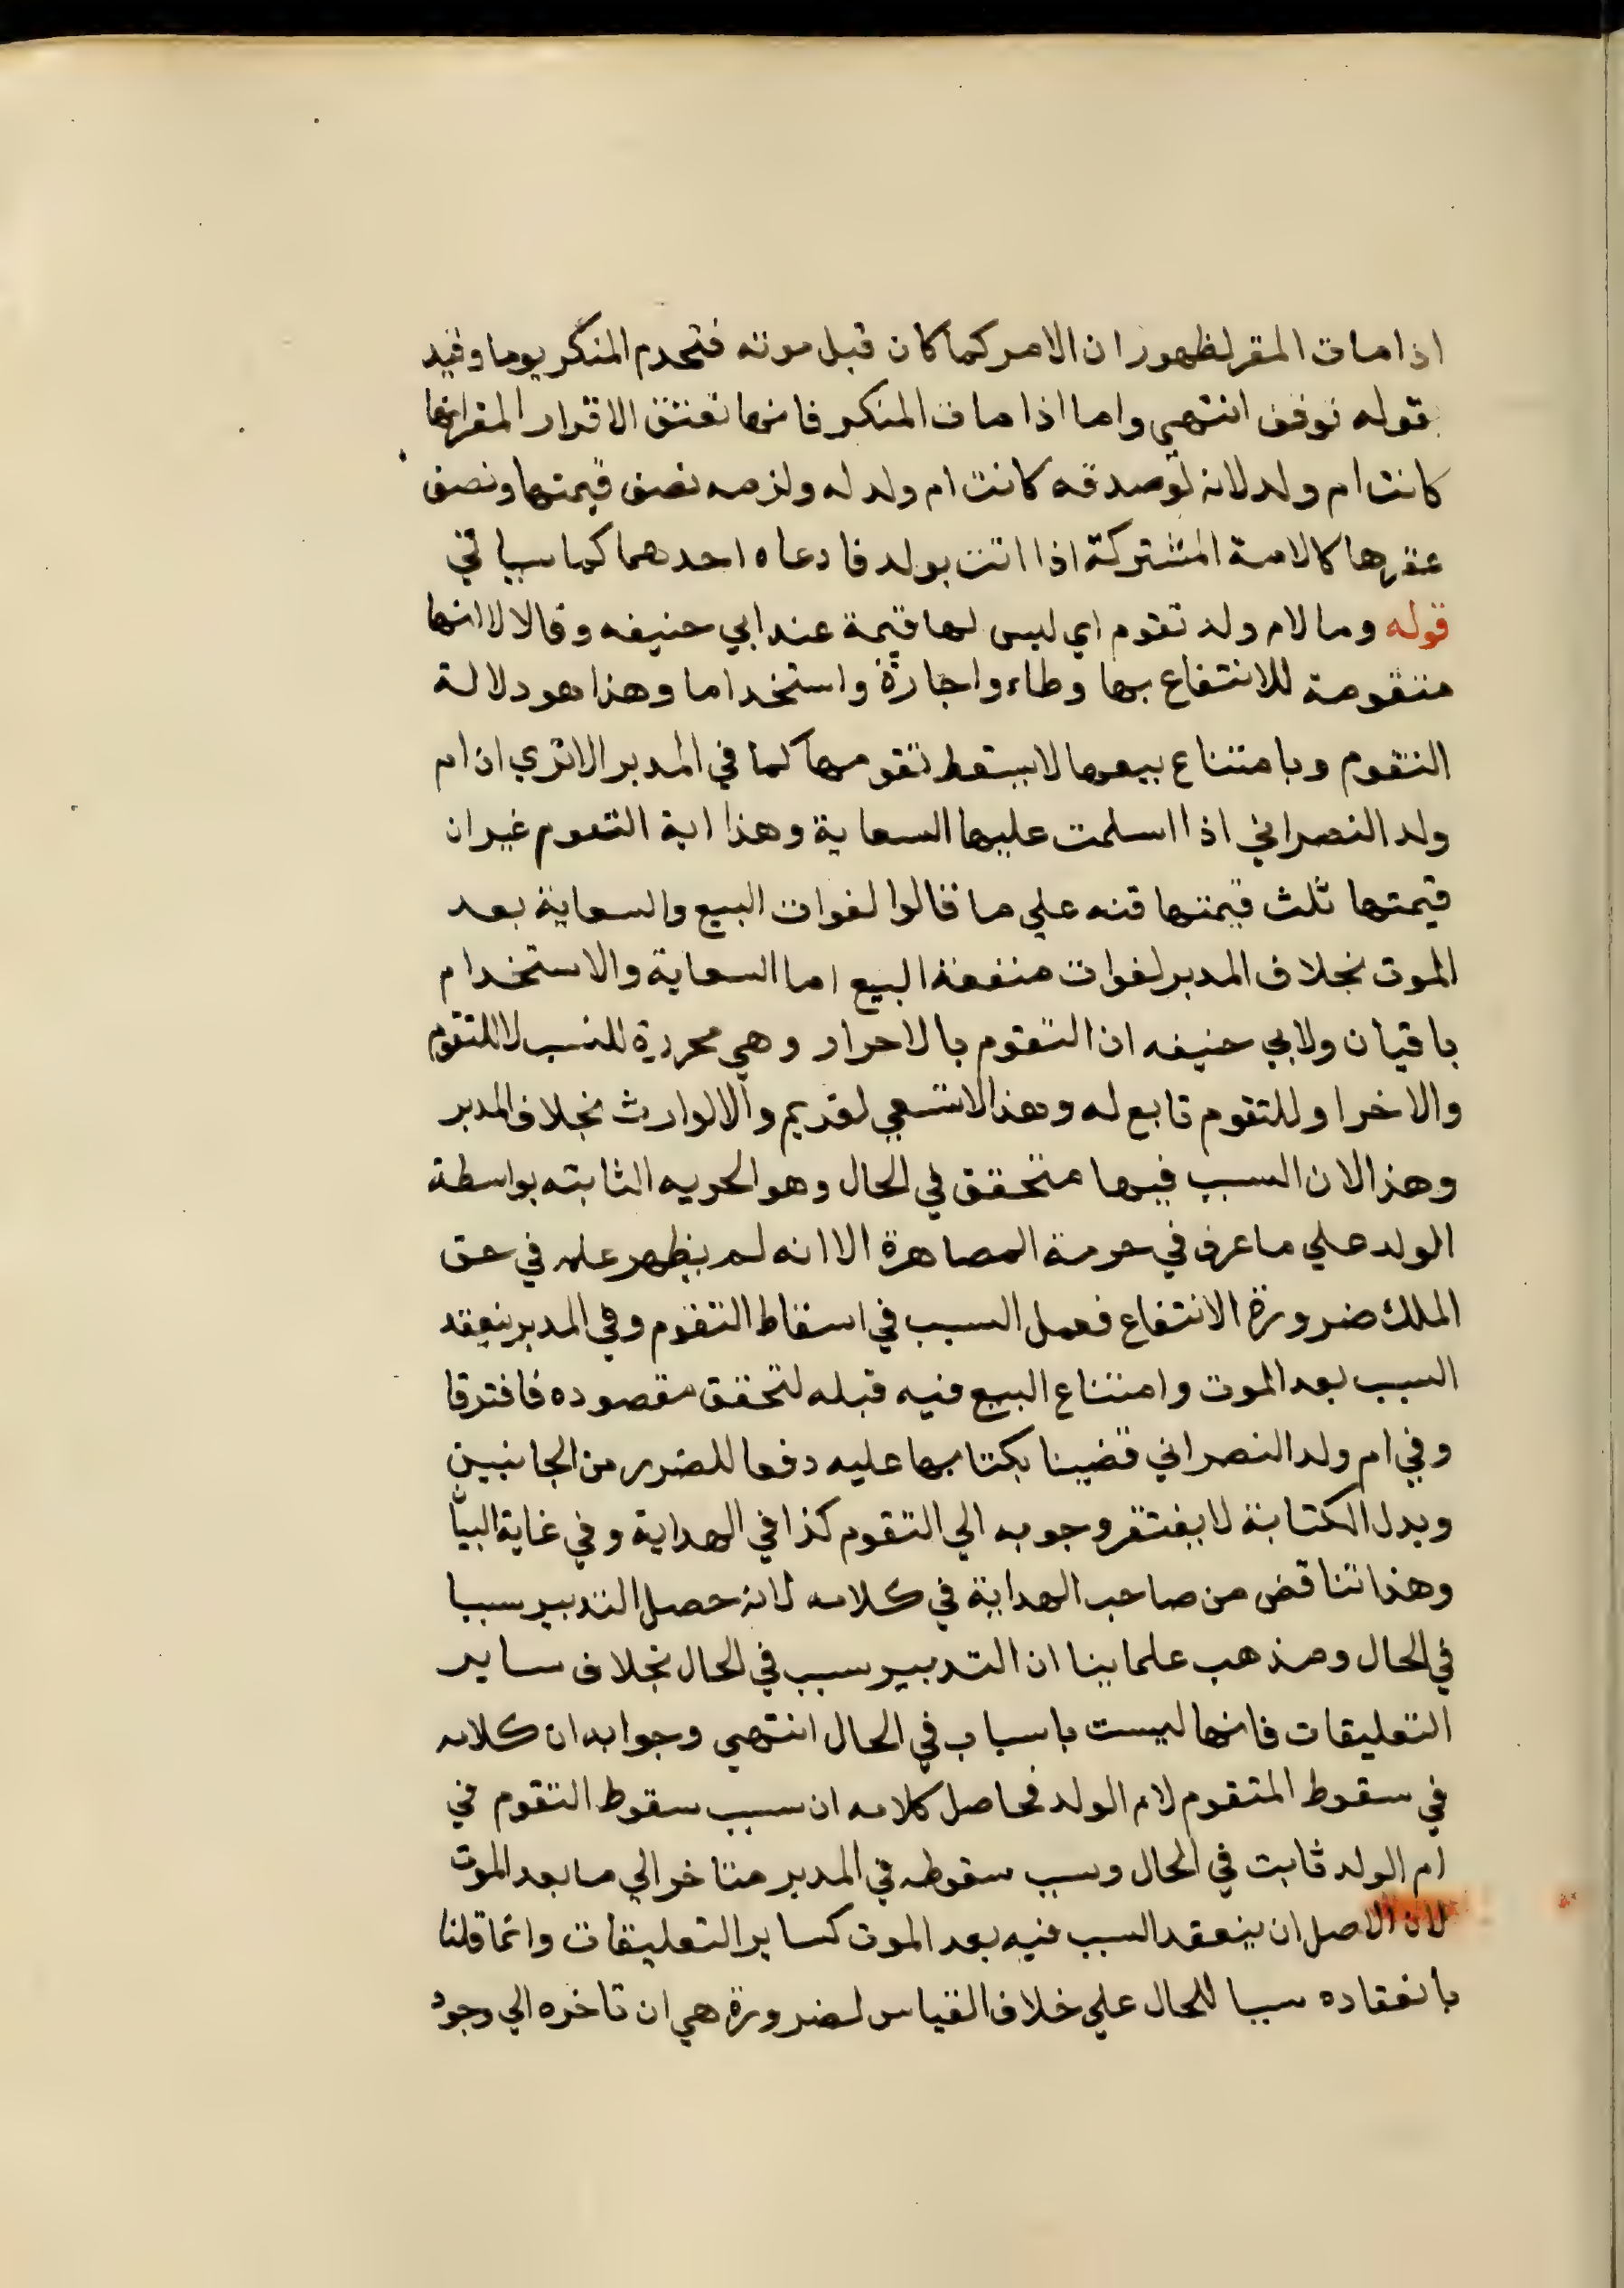 اذا مات المقر لظهور ان الامر كما كان قبل موته فتخدم المنكر يوما وفيد
قوله توقف انتهي واما اذا مات المنكر فانها تعتق الاقرار المقر انها
كانت ام ولد لانه لو صدقه كانت ام ولد له ولزمه نصف قيمتها ونصف
عقرها كالامة المشتركة اذا اتت بولد فادعاه احدهما كما سياتي
قوله وما لام ولد تقوم اي ليس لها قيمة عند ابي حنيفه وقالا لا انها
متقومة للانتفاع بها وطاء واجارة واستخداما وهذا هو دلالة
التقوم وبامتناع بيعها لا يسقط تقومها كما في المدبر الا تري ان ام
ولد النصراني اذا اسلمت عليها السعاية وهذا اية التقوم غير ان
قيمتها ثلث قيمتها قنه علي ما قالوا لفوات البيع والسعاية بعد
الموت بخلاف المدبر لفوات منفعة البيع اما السعاية والاستخدام
باقيان ولابي حنيفه ان التقوم بالاحرار وهي محررة للنسب لا للتقوم
والاخرا وللتقوم تابع له وهذا لا تسعي لغريم والا لوارث بخلاف المدبر
وهذا لان السبب فيها متحقق في الحال وهو الحريه الثابته بواسطة
الولد علي ما عرف في حرمة المصاهرة الا انه لم يظهر عمله في حق
الملك ضرورة الانتفاع فعمل السبب في اسقاط التقوم وفي المدبر ينعقد
السبب بعد الموت وامتناع البيع فيه قبله لتحقق مقصوده فافترقا
وفي ام ولد النصراني قضينا بكتابها عليه دفعا للضرر من الجانبين
وبدل الكتابة لا يفتقر وجوبه الي التقوم كذا في الهداية وفي غاية البيا
وهذا تناقض من صاحب الهداية في كلامه لانه حصل التدبير سببا
في الحال ومذهب علماينا ان التدبير سبب في الحال بخلاف ساير
التعليقات فانها ليست باسباب في الحال انتهي وجوابه ان كلامه
في سقوط المتقوم لام الولد فحاصل كلامه ان سبب سقوط التقوم في
ام الولد ثابت في الحال وسبب سقوطه في المدبر متاخر الي ما بعد الموت
لان الاصل ان ينعقد السبب فيه بعد الموت كساير التعليقات وانما قلنا
بانعقاده سببا للحال علي خلاف القياس لضرورة هي ان تاخره الي وجود